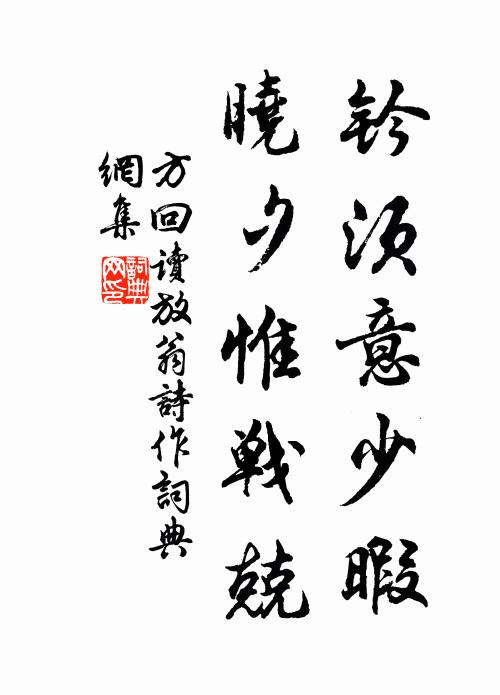 須意少暇
曉夕惟戰兢
方回讀放翁詩作詞典
網集
詞典網印